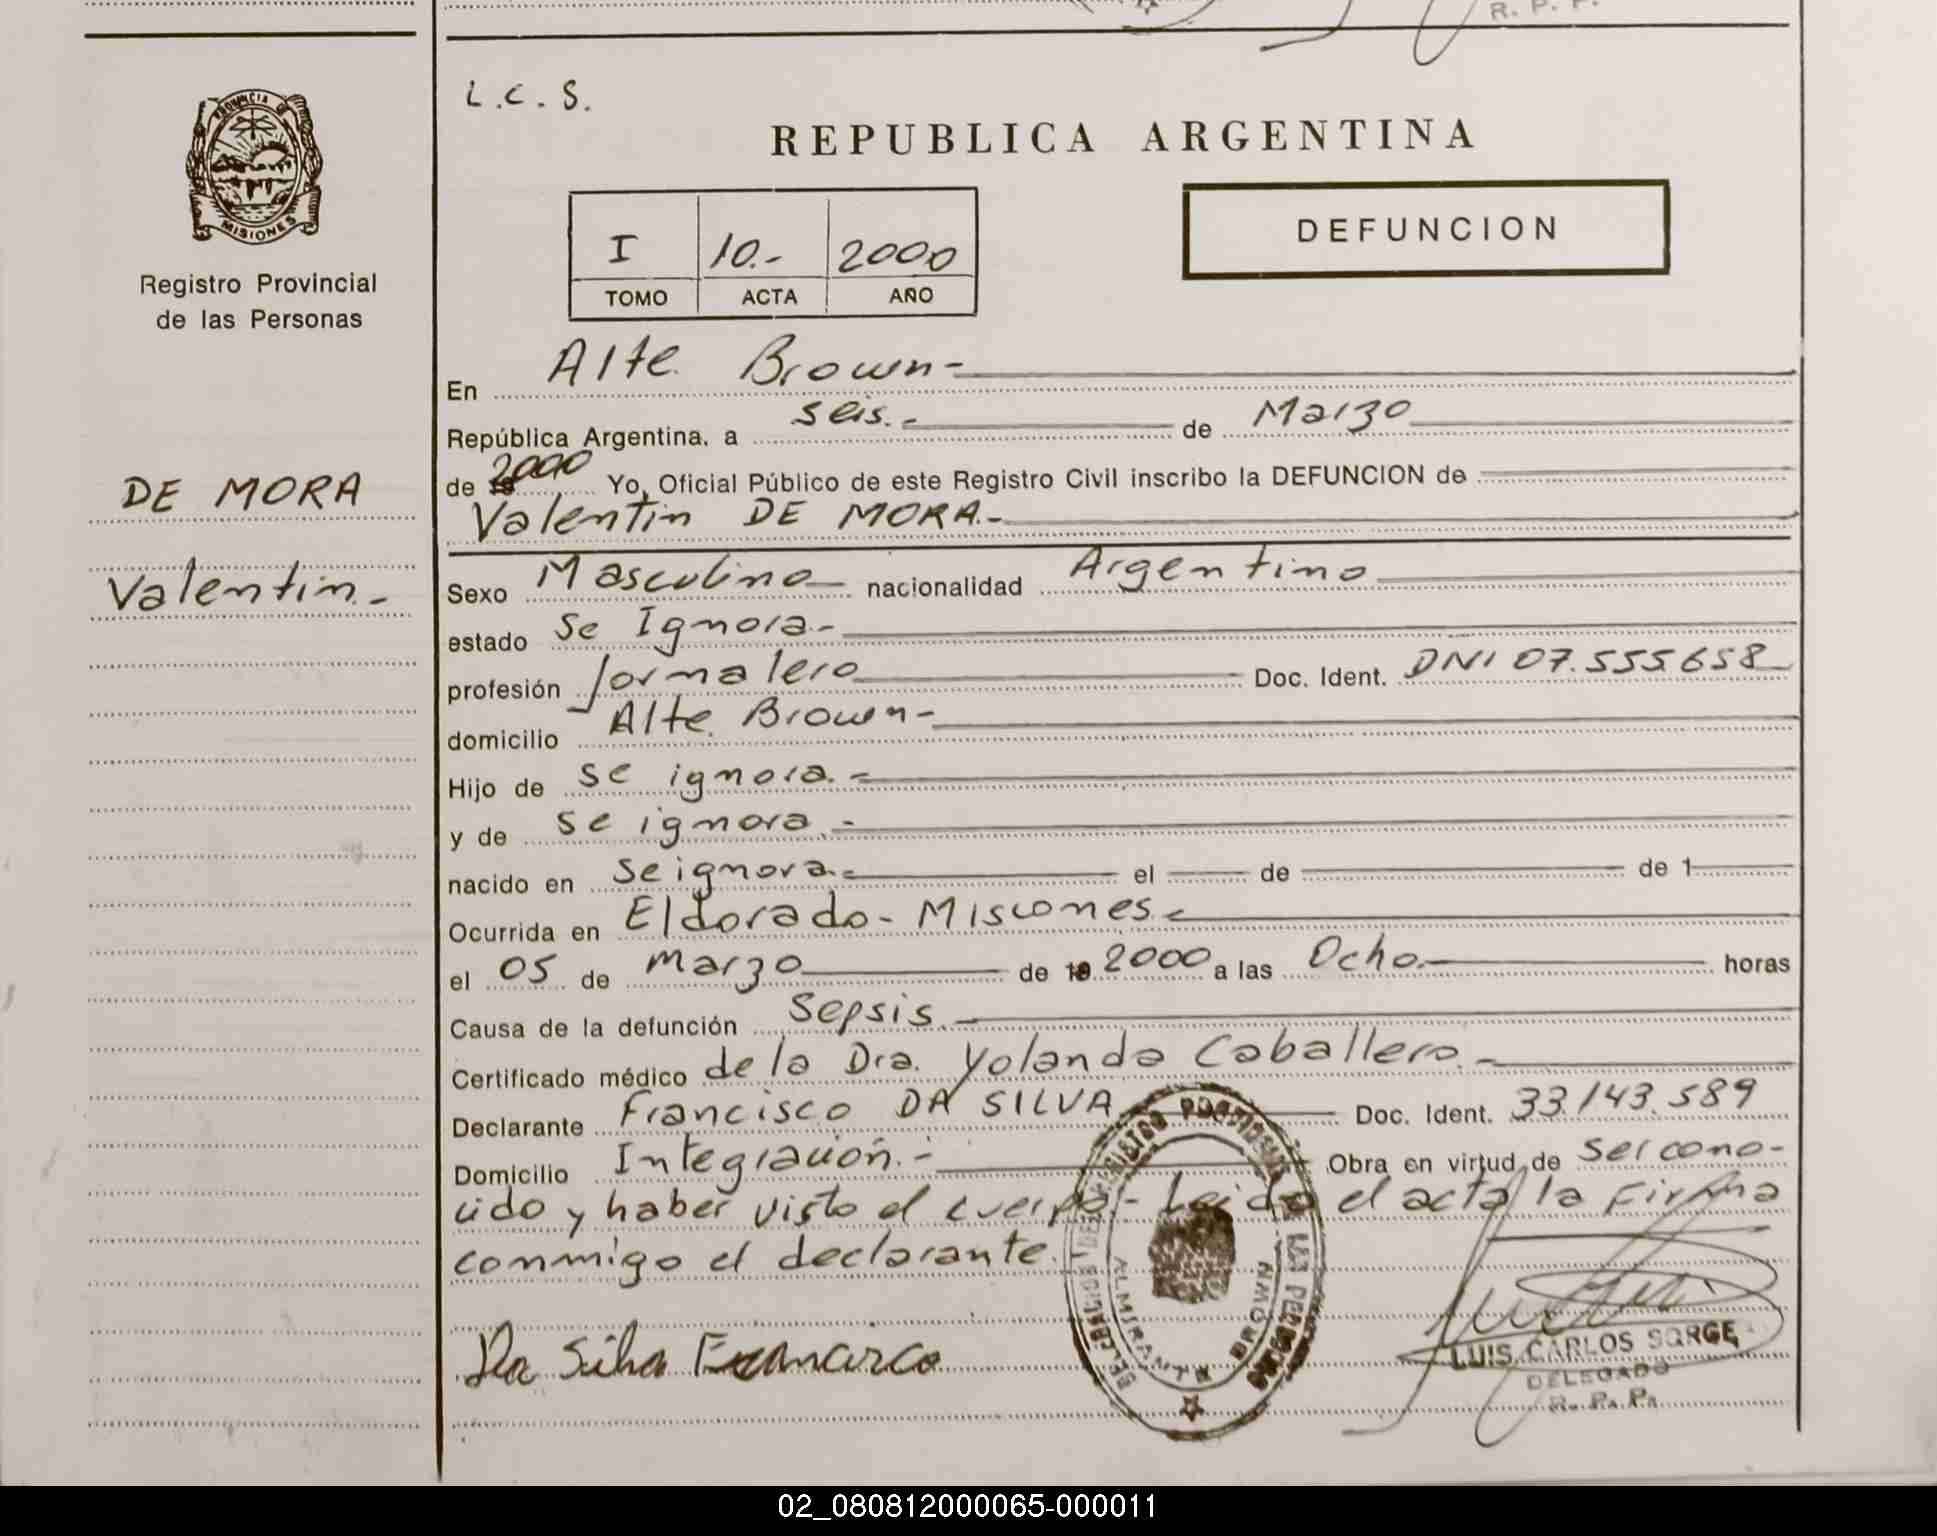 R. P. P.
L.C.S.
REPUBLICA ARGENTINA
PROVINCIA DE
MISIONES
Registro Provincial
de las Personas
DEFUNCION
I 10.- 2000
TOMO ACTA AÑO
DE MORA
Valentin.-
En Alte. Brown-
República Argentina, a seis.- de Marzo
de 19 2000 Yo, Oficial Público de este Registro Civil inscribo la DEFUNCION de
Valentin DE MORA.-
Sexo Masculino nacionalidad Argentino
estado Se Ignora.-
profesión Jornalero Doc. Ident. DNI 07.555.658
domicilio Alte. Brown-
Hijo de se ignora.-
y de se ignora.-
nacido en se ignora.- el de de 1
Ocurrida en Eldorado- Misiones.-
el 05 de Marzo de 19 2000 a las Ocho.- horas
Causa de la defunción Sepsis.-
Certificado médico de la Dra. Yolanda Caballero.-
Declarante Francisco DA SILVA Doc. Ident. 33.143.589
Domicilio Integración.- Obra en virtud de ser cono-
cido y haber visto el cuerpo.- Leida el acta la Firma
conmigo el declarante.
Da Silva Francisco
DELEGACION DEL REGISTRO PROVINCIAL DE LAS PERSONAS
ALMIRANTE BROWN
LUIS CARLOS SORGE
DELEGADO
R. P. P.
02_080812000065-000011